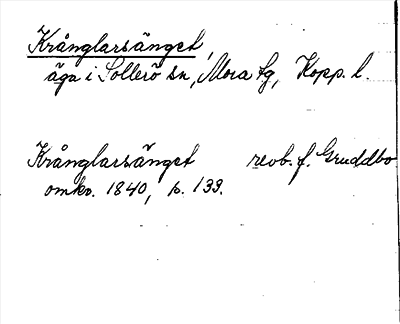 Krånglarsänget,
äga i Sollerö sn, Mora tg, Kopp. l.
Krånglarsänget revb. f. Gruddbo
omkr. 1840, s. 139.